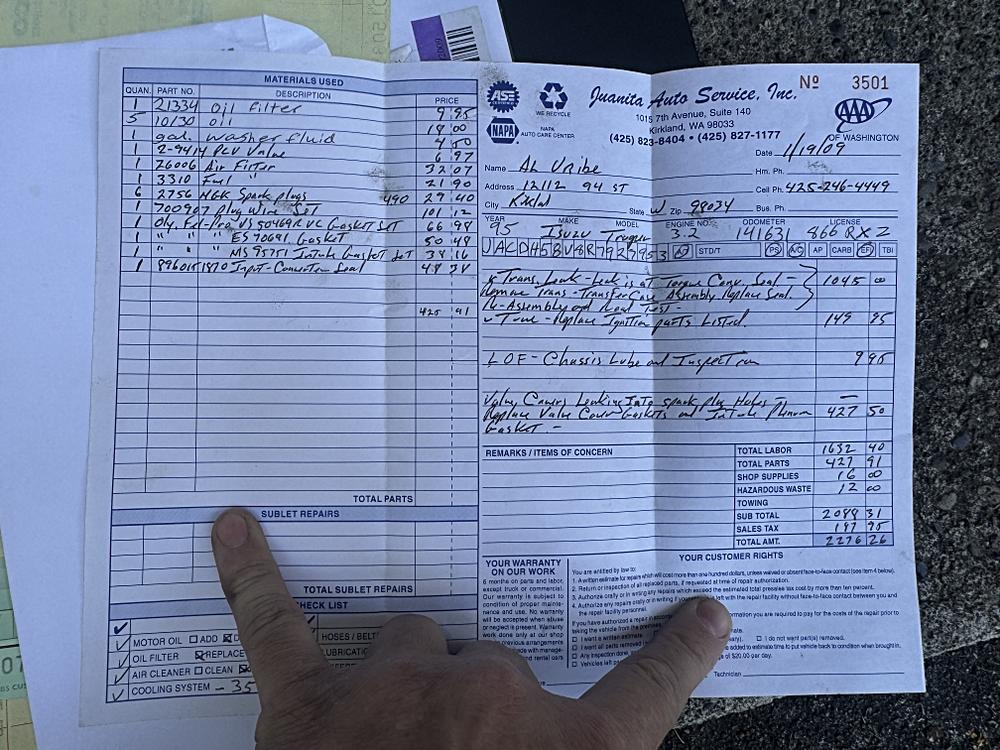 MATERIALS USED
QUAN. PART NO. DESCRIPTION PRICE
1 21334 Oil Filter 9 95
5 10/30 oil 18 00
1 gal. washer fluid 4 50
1 2-9414 PCV Valve 6 97
1 26006 Air Filter 32 07
1 3310 Fuel " 21 90
6 2756 NGK Spark plugs 490 29 40
1 700907 Plug Wire Set 101 12
1 Fel-Pro VS 50469R VC Gasket Set 66 98
1 " " ES 70691 Gasket 50 48
1 " " MS 95751 Intake Gasket Set 38 16
1 Input-Converter Seal 48
TOTAL PARTS
SUBLET REPAIRS
TOTAL SUBLET REPAIRS
CHECK LIST
MOTOR OIL ADD
HOSES / BELTS
OIL FILTER REPLACE
AIR CLEANER CLEAN
COOLING SYSTEM - 35
ASE CERTIFIED
WE RECYCLE
NAPA
NAPA AUTO CARE CENTER
Juanita Auto Service, Inc.
Nº 3501
1015 7th Avenue, Suite 140
Kirkland, WA 98033
(425) 823-8404 • (425) 827-1177
AAA
OF WASHINGTON
Date 1/19/09
Name AL Uribe
Hm. Ph.
Address 12112 94 ST
Cell Ph. 425-246-4449
City Kirklnd State W Zip 98034 Bus. Ph.
YEAR MAKE MODEL ENGINE NO. ODOMETER LICENSE
95 Isuzu Trooper 3.2 141631 866 RXZ
STD/T PS A/C AP CARB EFI TBI
Trans. Leak - Leak is at Torque Conv. Seal - 1045 00
Remove Trans - Transfer Case Assembly Replace Seal.
Re-Assembly and Road Test -
Tune - Replace Ignition parts Listed. 149 95
LOF - Chassis Lube and Inspection 9 95
Valve Covers Leaking Into spark plug Holes -
Replace Valve Cover Gaskets and Intake Plenum 427 50
Gasket. -
REMARKS / ITEMS OF CONCERN
TOTAL LABOR 1632 40
TOTAL PARTS 427 91
SHOP SUPPLIES 16 00
HAZARDOUS WASTE 12 00
TOWING
SUB TOTAL 2088 31
SALES TAX 187 95
TOTAL AMT. 2276 26
YOUR WARRANTY ON OUR WORK
6 months on parts and labor,
except truck or commercial.
Our warranty is subject to
condition of proper mainte-
nance and use. No warranty
will be accepted when abuse
or neglect is present. Warranty
work done only at our shop
YOUR CUSTOMER RIGHTS
You are entitled by law to:
1. A written estimate for repairs which will cost more than one hundred dollars, unless waived or absent face-to-face contact (see item 4 below).
2. Return or inspection of all replaced parts, if requested at time of repair authorization.
3. Authorize orally or in writing any repairs which exceed the estimated total presales tax cost by more than ten percent.
4. Authorize any repairs orally or in writing if left with the repair facility without face-to-face contact between you and
the repair facility personnel.
If you have authorized a repair in
taking the vehicle from the premises
I want a written estimate
I do not want part(s) removed.
Technician